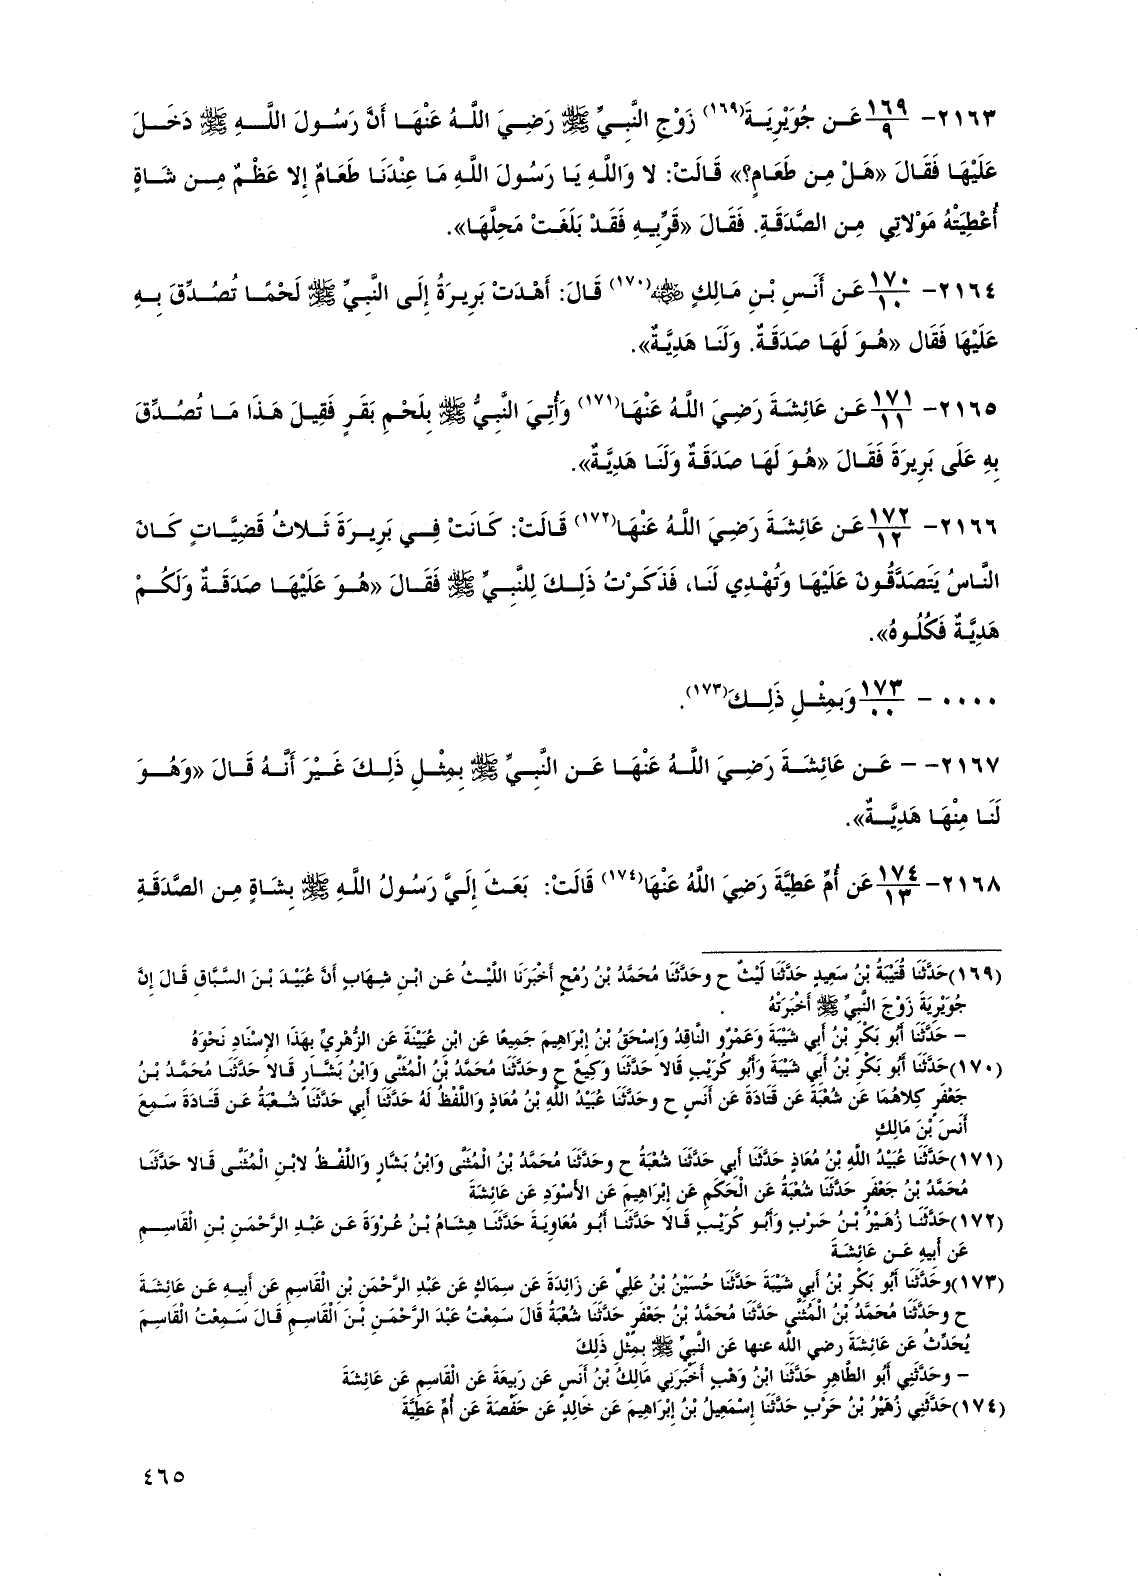 ٢١٦٣- ١٦٩/٩ عَن جُوَيْرِيَةَ(١٦٩) زَوْجِ النَّبِيِّ ﷺ رَضِيَ اللَّهُ عَنْهَا أَنَّ رَسُولَ اللَّهِ ﷺ دَخَلَ
عَلَيْهَا فَقَالَ «هَلْ مِن طَعَامٍ؟» قَالَتْ: لا وَاللَّهِ يَا رَسُولَ اللَّهِ مَا عِنْدَنَا طَعَامٌ إِلا عَظْمٌ مِن شَاةٍ
أُعْطِيَتْهُ مَوْلاتِي مِن الصَّدَقَةِ. فَقَالَ «قَرِّبِيهِ فَقَدْ بَلَغَتْ مَحِلَّهَا».
٢١٦٤- ١٧٠/١٠ عَن أَنَسِ بْنِ مَالِكٍ ﷺ(١٧٠) قَالَ: أَهْدَتْ بَرِيرَةُ إِلَى النَّبِيِّ ﷺ لَحْمًا تُصُدِّقَ بِهِ
عَلَيْهَا فَقَال «هُوَ لَهَا صَدَقَةٌ. وَلَنَا هَدِيَّةٌ».
٢١٦٥- ١٧١/١١ عَن عَائِشَةَ رَضِيَ اللَّهُ عَنْهَا(١٧١) وَأُتِيَ النَّبِيُّ ﷺ بِلَحْمِ بَقَرٍ فَقِيلَ هَذَا مَا تُصُدِّقَ
بِهِ عَلَى بَرِيرَةَ فَقَالَ «هُوَ لَهَا صَدَقَةٌ وَلَنَا هَدِيَّةٌ».
٢١٦٦- ١٧٢/١٢ عَن عَائِشَةَ رَضِيَ اللَّهُ عَنْهَا(١٧٢) قَالَتْ: كَانَتْ فِي بَرِيرَةَ ثَلاثُ قَضِيَّاتٍ كَانَ
النَّاسُ يَتَصَدَّقُونَ عَلَيْهَا وَتُهْدِي لَنَا، فَذَكَرْتُ ذَلِكَ لِلنَّبِيِّ ﷺ فَقَالَ «هُوَ عَلَيْهَا صَدَقَةٌ وَلَكُمْ
هَدِيَّةٌ فَكُلُوهُ».
٠٠٠٠ - ١٧٣/٠٠ وَبِمِثْلِ ذَلِكَ(١٧٣).
٢١٦٧- - عَن عَائِشَةَ رَضِيَ اللَّهُ عَنْهَا عَن النَّبِيِّ ﷺ بِمِثْلِ ذَلِكَ غَيْرَ أَنَّهُ قَالَ «وَهُوَ
لَنَا مِنْهَا هَدِيَّةٌ».
٢١٦٨- ١٧٤/١٣ عَن أُمِّ عَطِيَّةَ رَضِيَ اللَّهُ عَنْهَا(١٧٤) قَالَتْ: بَعَثَ إِلَيَّ رَسُولُ اللَّهِ ﷺ بِشَاةٍ مِن الصَّدَقَةِ
(١٦٩) حَدَّثَنَا قُتَيْبَةُ بْنُ سَعِيدٍ حَدَّثَنَا لَيْثٌ ح وحَدَّثَنَا مُحَمَّدُ بْنُ رُمْحٍ أَخْبَرَنَا اللَّيْثُ عَن ابْنِ شِهَابٍ أَنَّ عُبَيْدَ بْنَ السَّبَّاقِ قَالَ إِنَّ
جُوَيْرِيَةَ زَوْجَ النَّبِيِّ ﷺ أَخْبَرَتْهُ
- حَدَّثَنَا أَبُو بَكْرِ بْنُ أَبِي شَيْبَةَ وَعَمْرٌو النَّاقِدُ وَإِسْحَقُ بْنُ إِبْرَاهِيمَ جَمِيعًا عَن ابْنِ عُيَيْنَةَ عَن الزُّهْرِيِّ بِهَذَا الإِسْنَادِ نَحْوَهُ
(١٧٠) حَدَّثَنَا أَبُو بَكْرِ بْنُ أَبِي شَيْبَةَ وَأَبُو كُرَيْبٍ قَالا حَدَّثَنَا وَكِيعٌ ح وحَدَّثَنَا مُحَمَّدُ بْنُ الْمُثَنَّى وَابْنُ بَشَّارٍ قَالا حَدَّثَنَا مُحَمَّدُ بْنُ
جَعْفَرٍ كِلاهُمَا عَن شُعْبَةَ عَن قَتَادَةَ عَن أَنَسٍ ح وحَدَّثَنَا عُبَيْدُ اللَّهِ بْنُ مُعَاذٍ وَاللَّفْظُ لَهُ حَدَّثَنَا أَبِي حَدَّثَنَا شُعْبَةُ عَن قَتَادَةَ سَمِعَ
أَنَسَ بْنَ مَالِكٍ
(١٧١) حَدَّثَنَا عُبَيْدُ اللَّهِ بْنُ مُعَاذٍ حَدَّثَنَا أَبِي حَدَّثَنَا شُعْبَةُ ح وحَدَّثَنَا مُحَمَّدُ بْنُ الْمُثَنَّى وَابْنُ بَشَّارٍ وَاللَّفْظُ لابْنِ الْمُثَنَّى قَالا حَدَّثَنَا
مُحَمَّدُ بْنُ جَعْفَرٍ حَدَّثَنَا شُعْبَةُ عَن الْحَكَمِ عَن إِبْرَاهِيمَ عَن الأَسْوَدِ عَن عَائِشَةَ
(١٧٢) حَدَّثَنَا زُهَيْرُ بْنُ حَرْبٍ وَأَبُو كُرَيْبٍ قَالا حَدَّثَنَا أَبُو مُعَاوِيَةَ حَدَّثَنَا هِشَامُ بْنُ عُرْوَةَ عَن عَبْدِ الرَّحْمَنِ بْنِ الْقَاسِمِ
عَن أَبِيهِ عَن عَائِشَةَ
(١٧٣) وحَدَّثَنَا أَبُو بَكْرِ بْنُ أَبِي شَيْبَةَ حَدَّثَنَا حُسَيْنُ بْنُ عَلِيٍّ عَن زَائِدَةَ عَن سِمَاكٍ عَن عَبْدِ الرَّحْمَنِ بْنِ الْقَاسِمِ عَن أَبِيهِ عَن عَائِشَةَ
ح وحَدَّثَنَا مُحَمَّدُ بْنُ الْمُثَنَّى حَدَّثَنَا مُحَمَّدُ بْنُ جَعْفَرٍ حَدَّثَنَا شُعْبَةُ قَالَ سَمِعْتُ عَبْدَ الرَّحْمَنِ بْنَ الْقَاسِمِ قَالَ سَمِعْتُ الْقَاسِمَ
يُحَدِّثُ عَن عَائِشَةَ رضي الله عنها عَن النَّبِيِّ ﷺ بِمِثْلِ ذَلِكَ
- وحَدَّثَنِي أَبُو الطَّاهِرِ حَدَّثَنَا ابْنُ وَهْبٍ أَخْبَرَنِي مَالِكُ بْنُ أَنَسٍ عَن رَبِيعَةَ عَن الْقَاسِمِ عَن عَائِشَةَ
(١٧٤) حَدَّثَنِي زُهَيْرُ بْنُ حَرْبٍ حَدَّثَنَا إِسْمَعِيلُ بْنُ إِبْرَاهِيمَ عَن خَالِدٍ عَن حَفْصَةَ عَن أُمِّ عَطِيَّةَ
٤٦٥